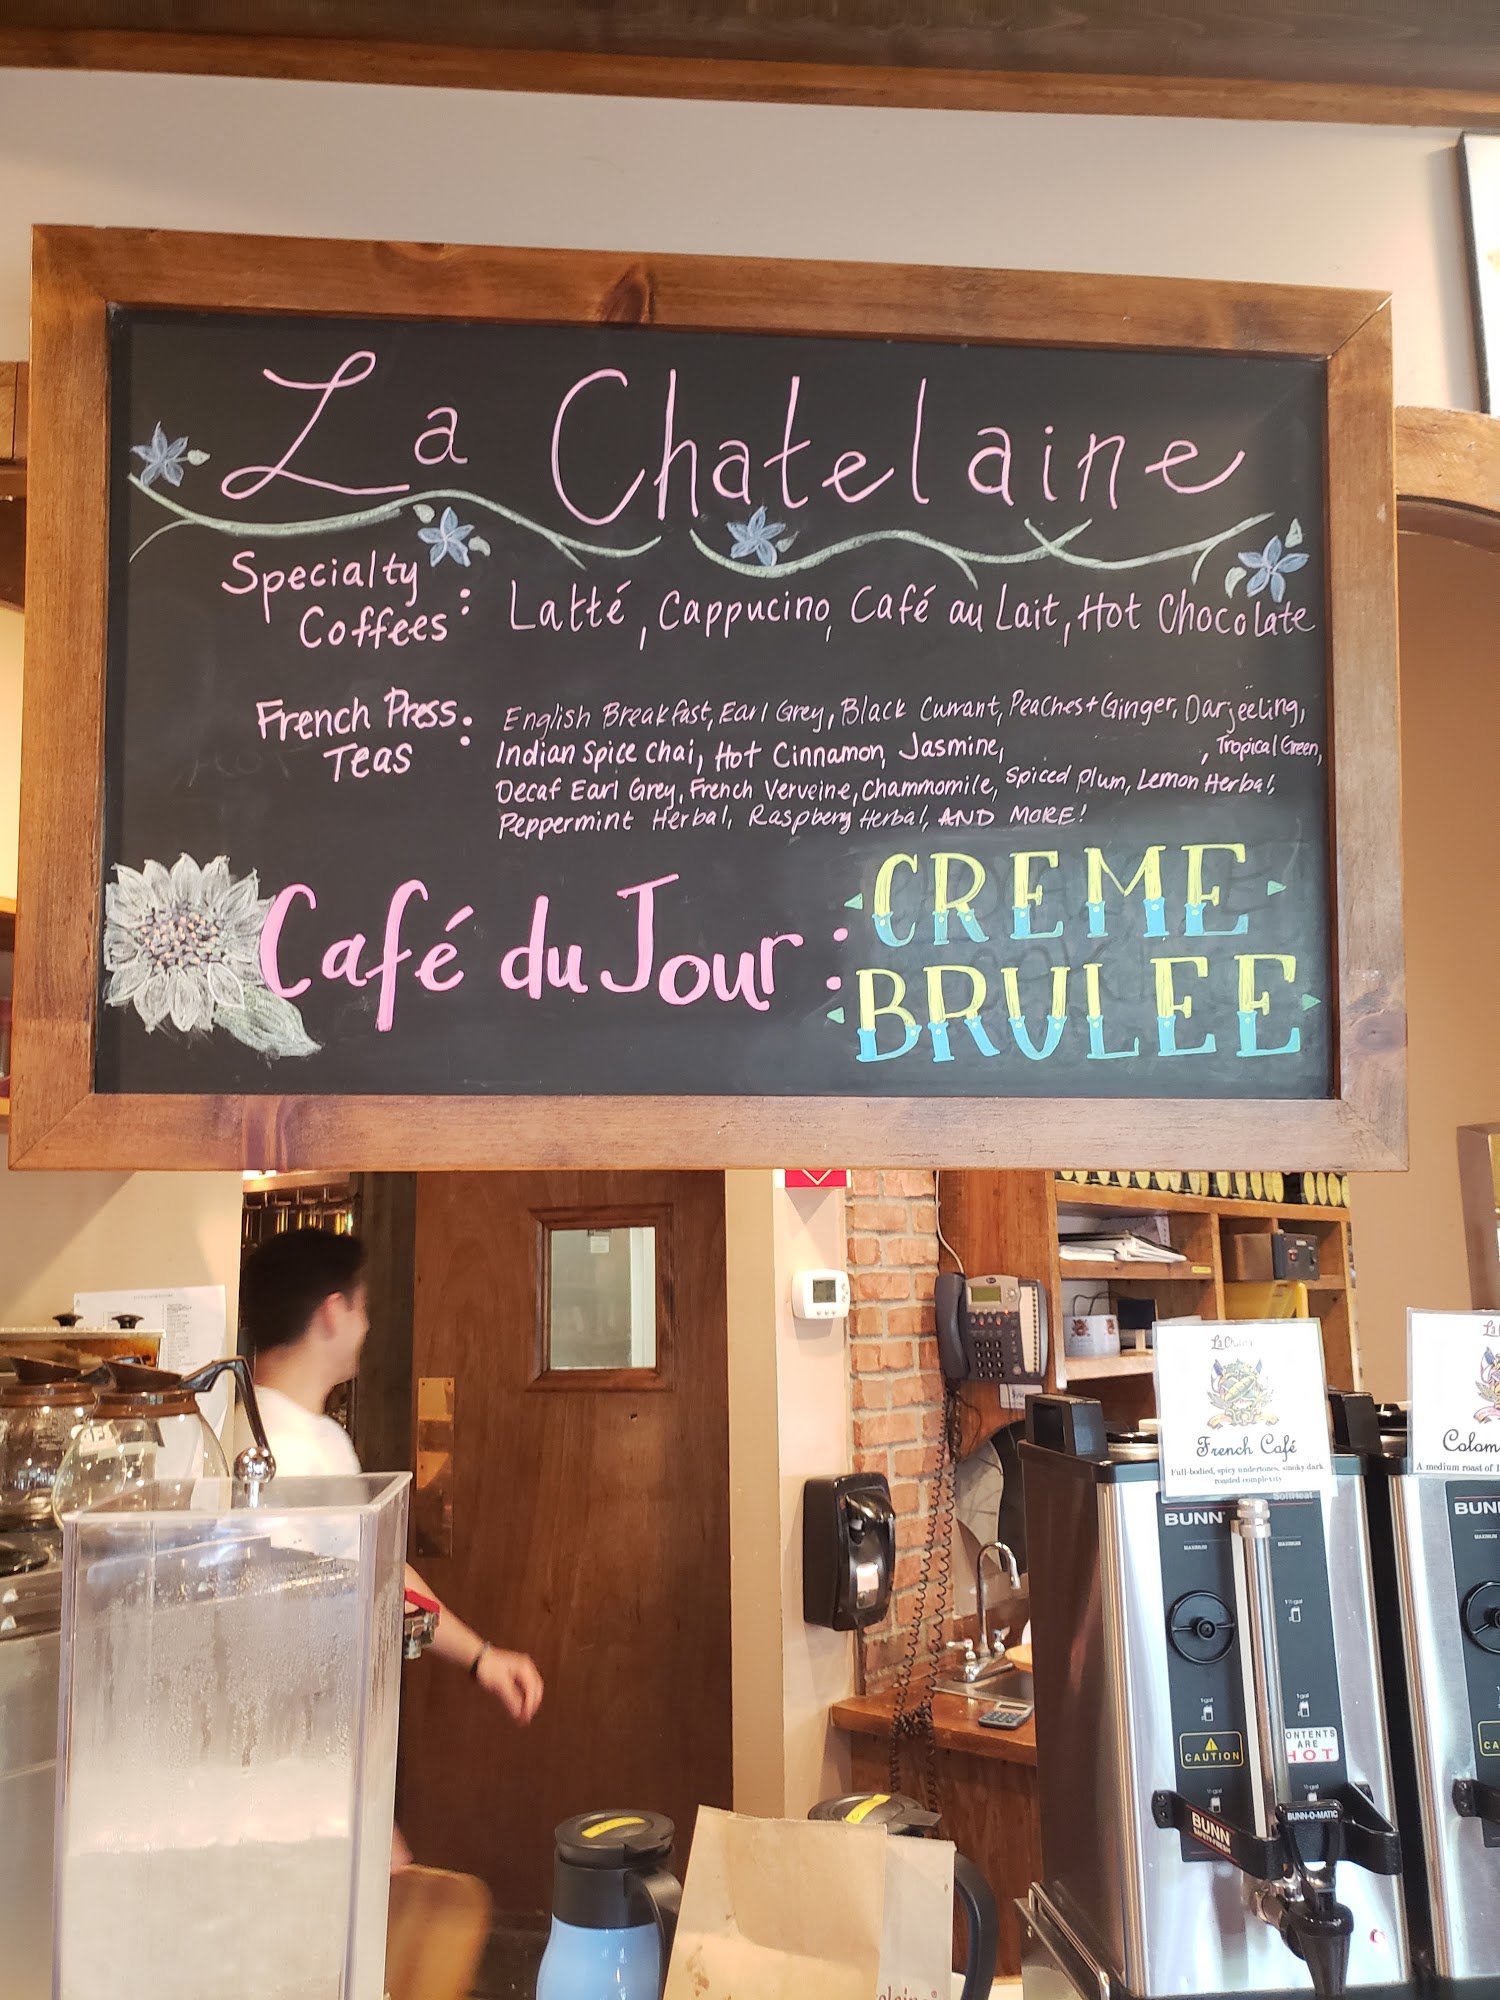 La Chatelaine
Specialty
Coffees : Latté, Cappucino, Café au Lait, Hot Chocolate
French Press :
Teas
English Breakfast, Earl Grey, Black Currant, Peaches + Ginger, Darjeeling,
Indian Spice Chai, Hot Cinnamon, Jasmine, , Tropical Green,
Decaf Earl Grey, French Verveine, Chammomile, Spiced Plum, Lemon Herbal,
Peppermint Herbal, Raspberry Herbal, AND MORE!
Café du Jour :
CREME
BRULEE
French Café
Full-bodied, spicy undertones, smoky dark
roasted complexity
A medium roast of
SoftHeat
BUNN
MAXIMUM
MAXIMUM
1 gal
1 gal
CAUTION
CONTENTS
ARE
HOT
BUNN-O-MATIC
BUNN
SAFETY-FRESH
BUNN